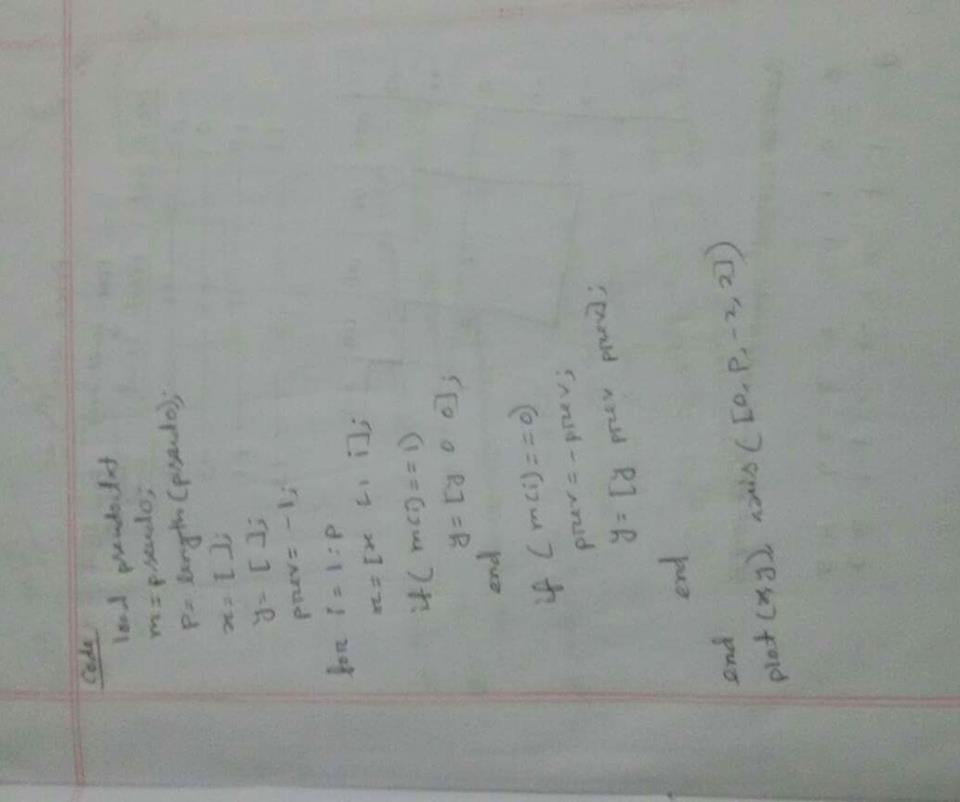 Code
load pseudo.txt
m = pseudo;
P = length (pseudo);
x = [ ];
y = [ ];
prev = -1;
for i = 1:P
x = [x i];
if ( m(i) == 1)
y = [y 0 0];
end
if ( m(i) == 0)
prev = -prev;
y = [y prev prev];
end
end
plot (x,y), axis ( [0, P, -2, 2])